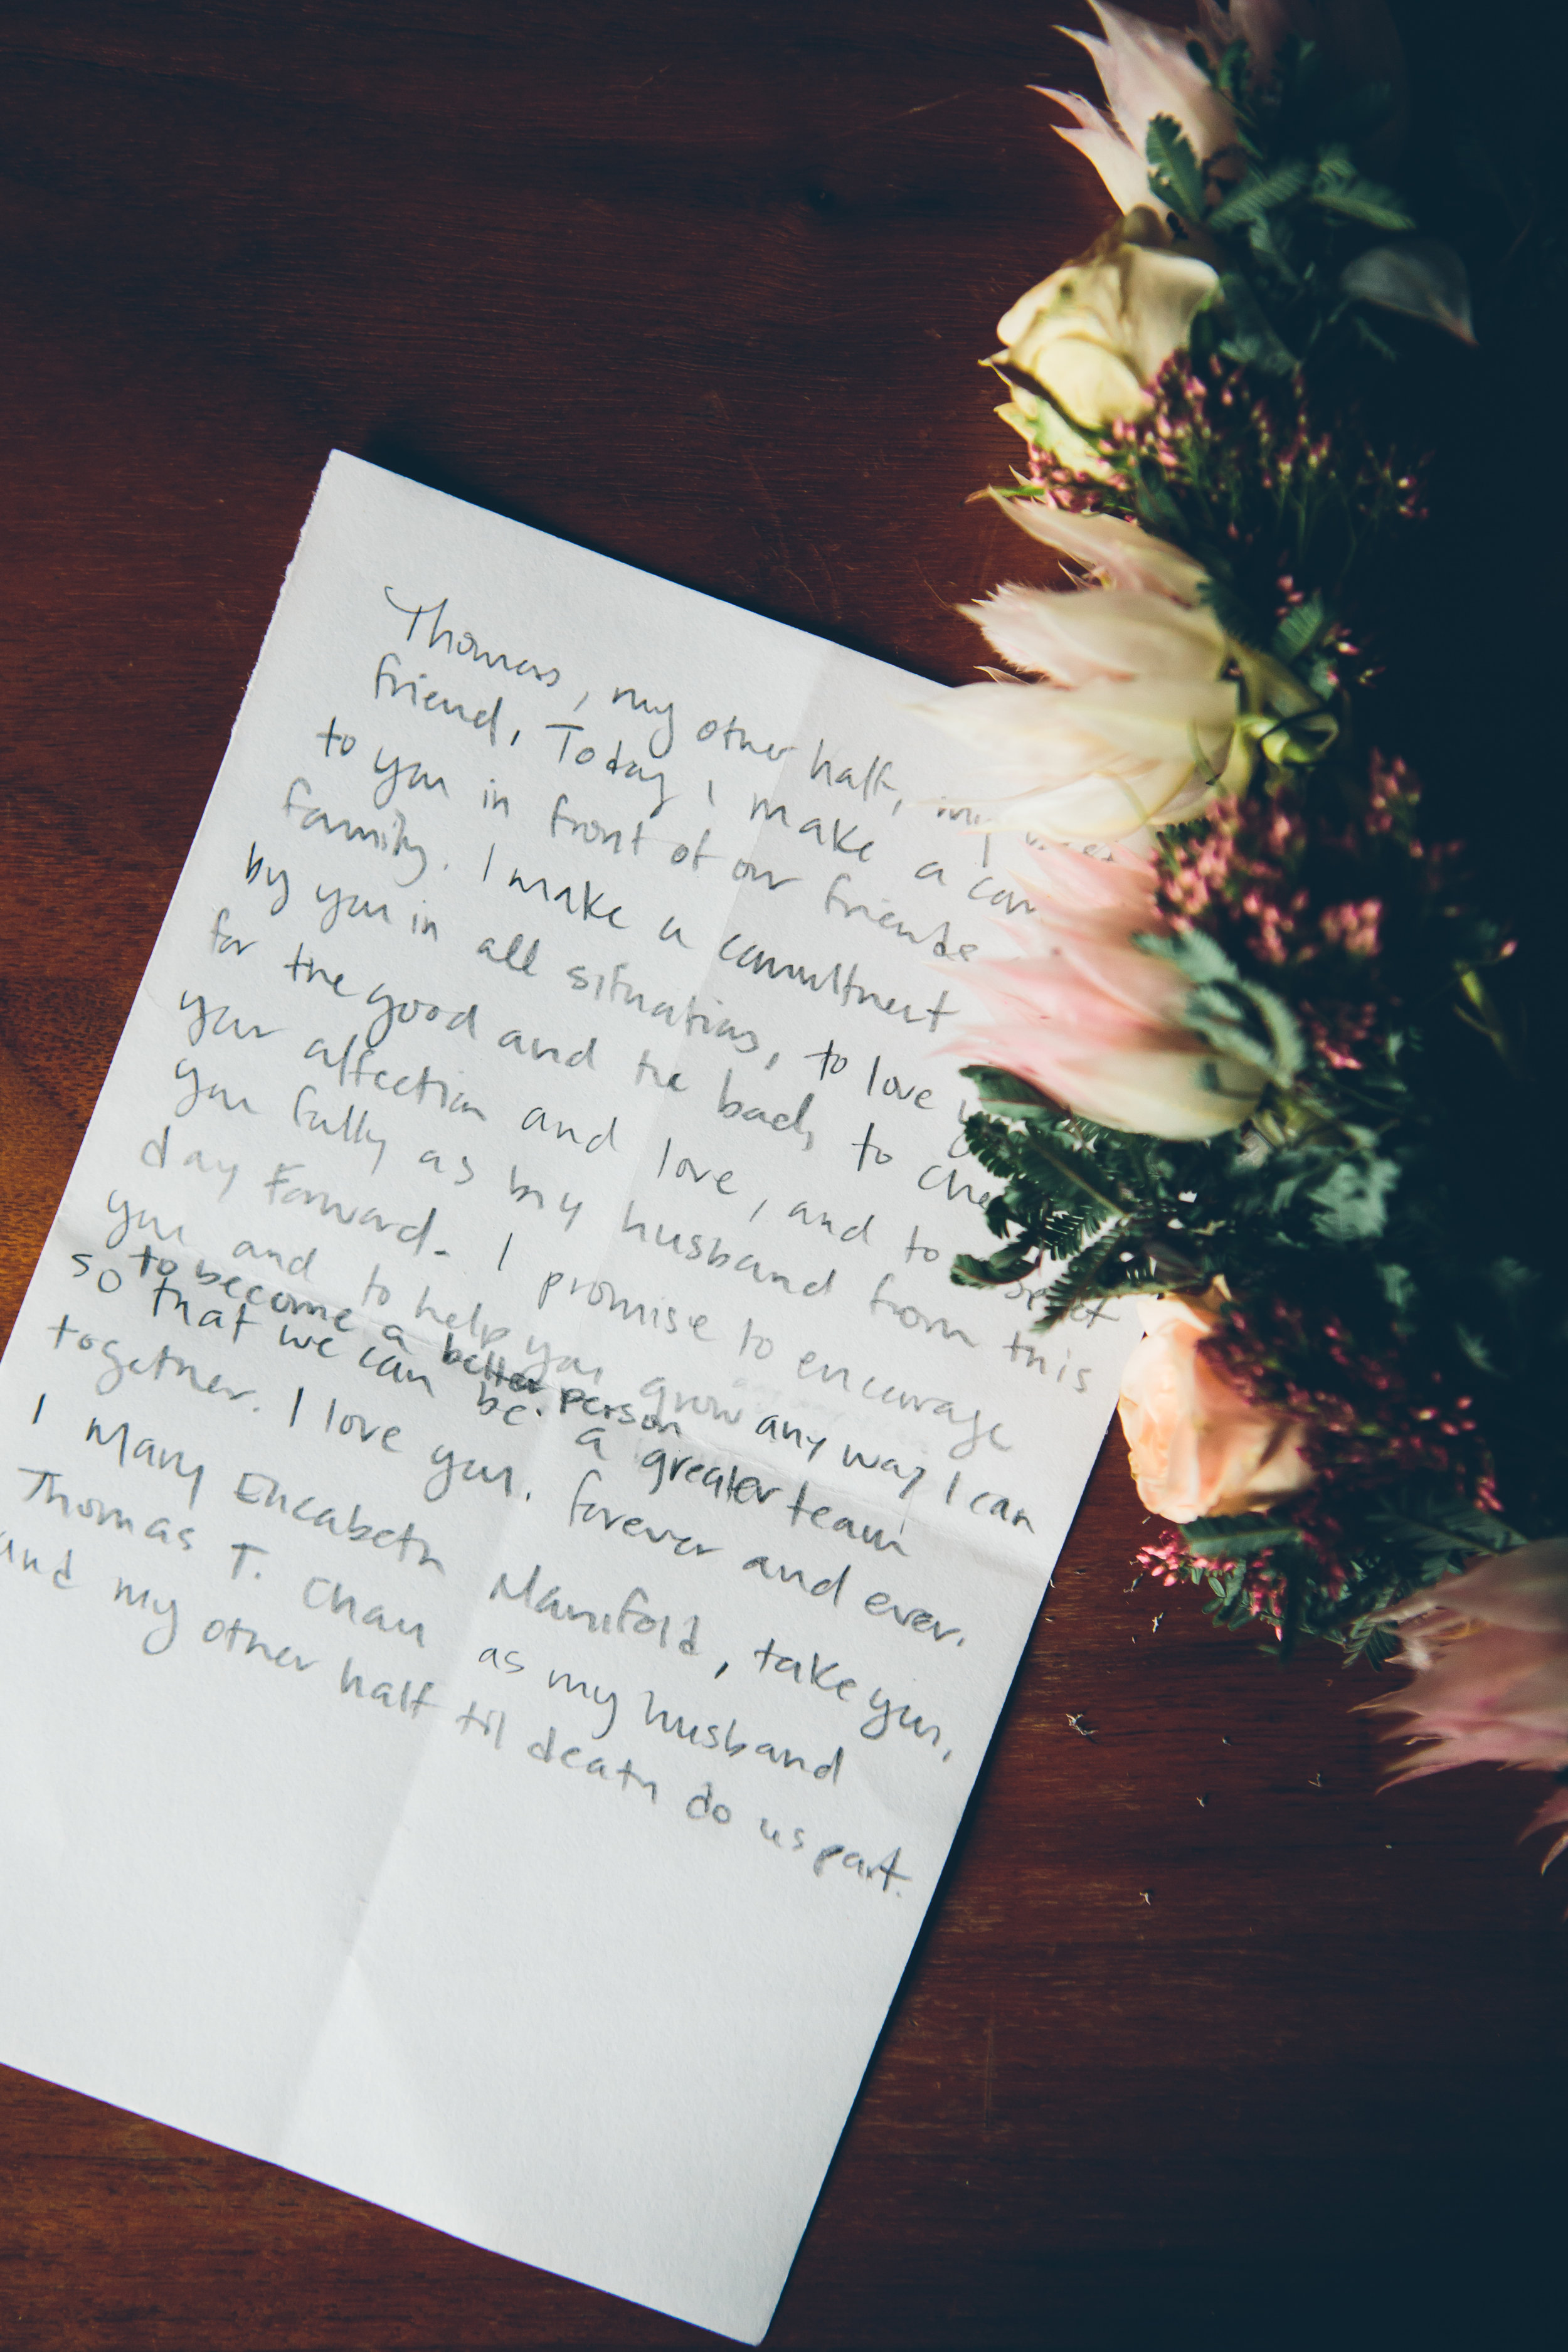 Thomas, my other half, my
friend, Today I make a com
to you in front of our friends
family. I make a commitment
by you in all situations, to love y
for the good and the bad, to che
your affection and love, and to
you fully as my husband from this
day forward. I promise to encourage
you and to help you grow any way I can
to become a better person
so that we can be a greater team
together. I love you. forever and ever.
I Mary Elizabeth Manifold, take you,
Thomas T. Chau as my husband
and my other half til death do us part.